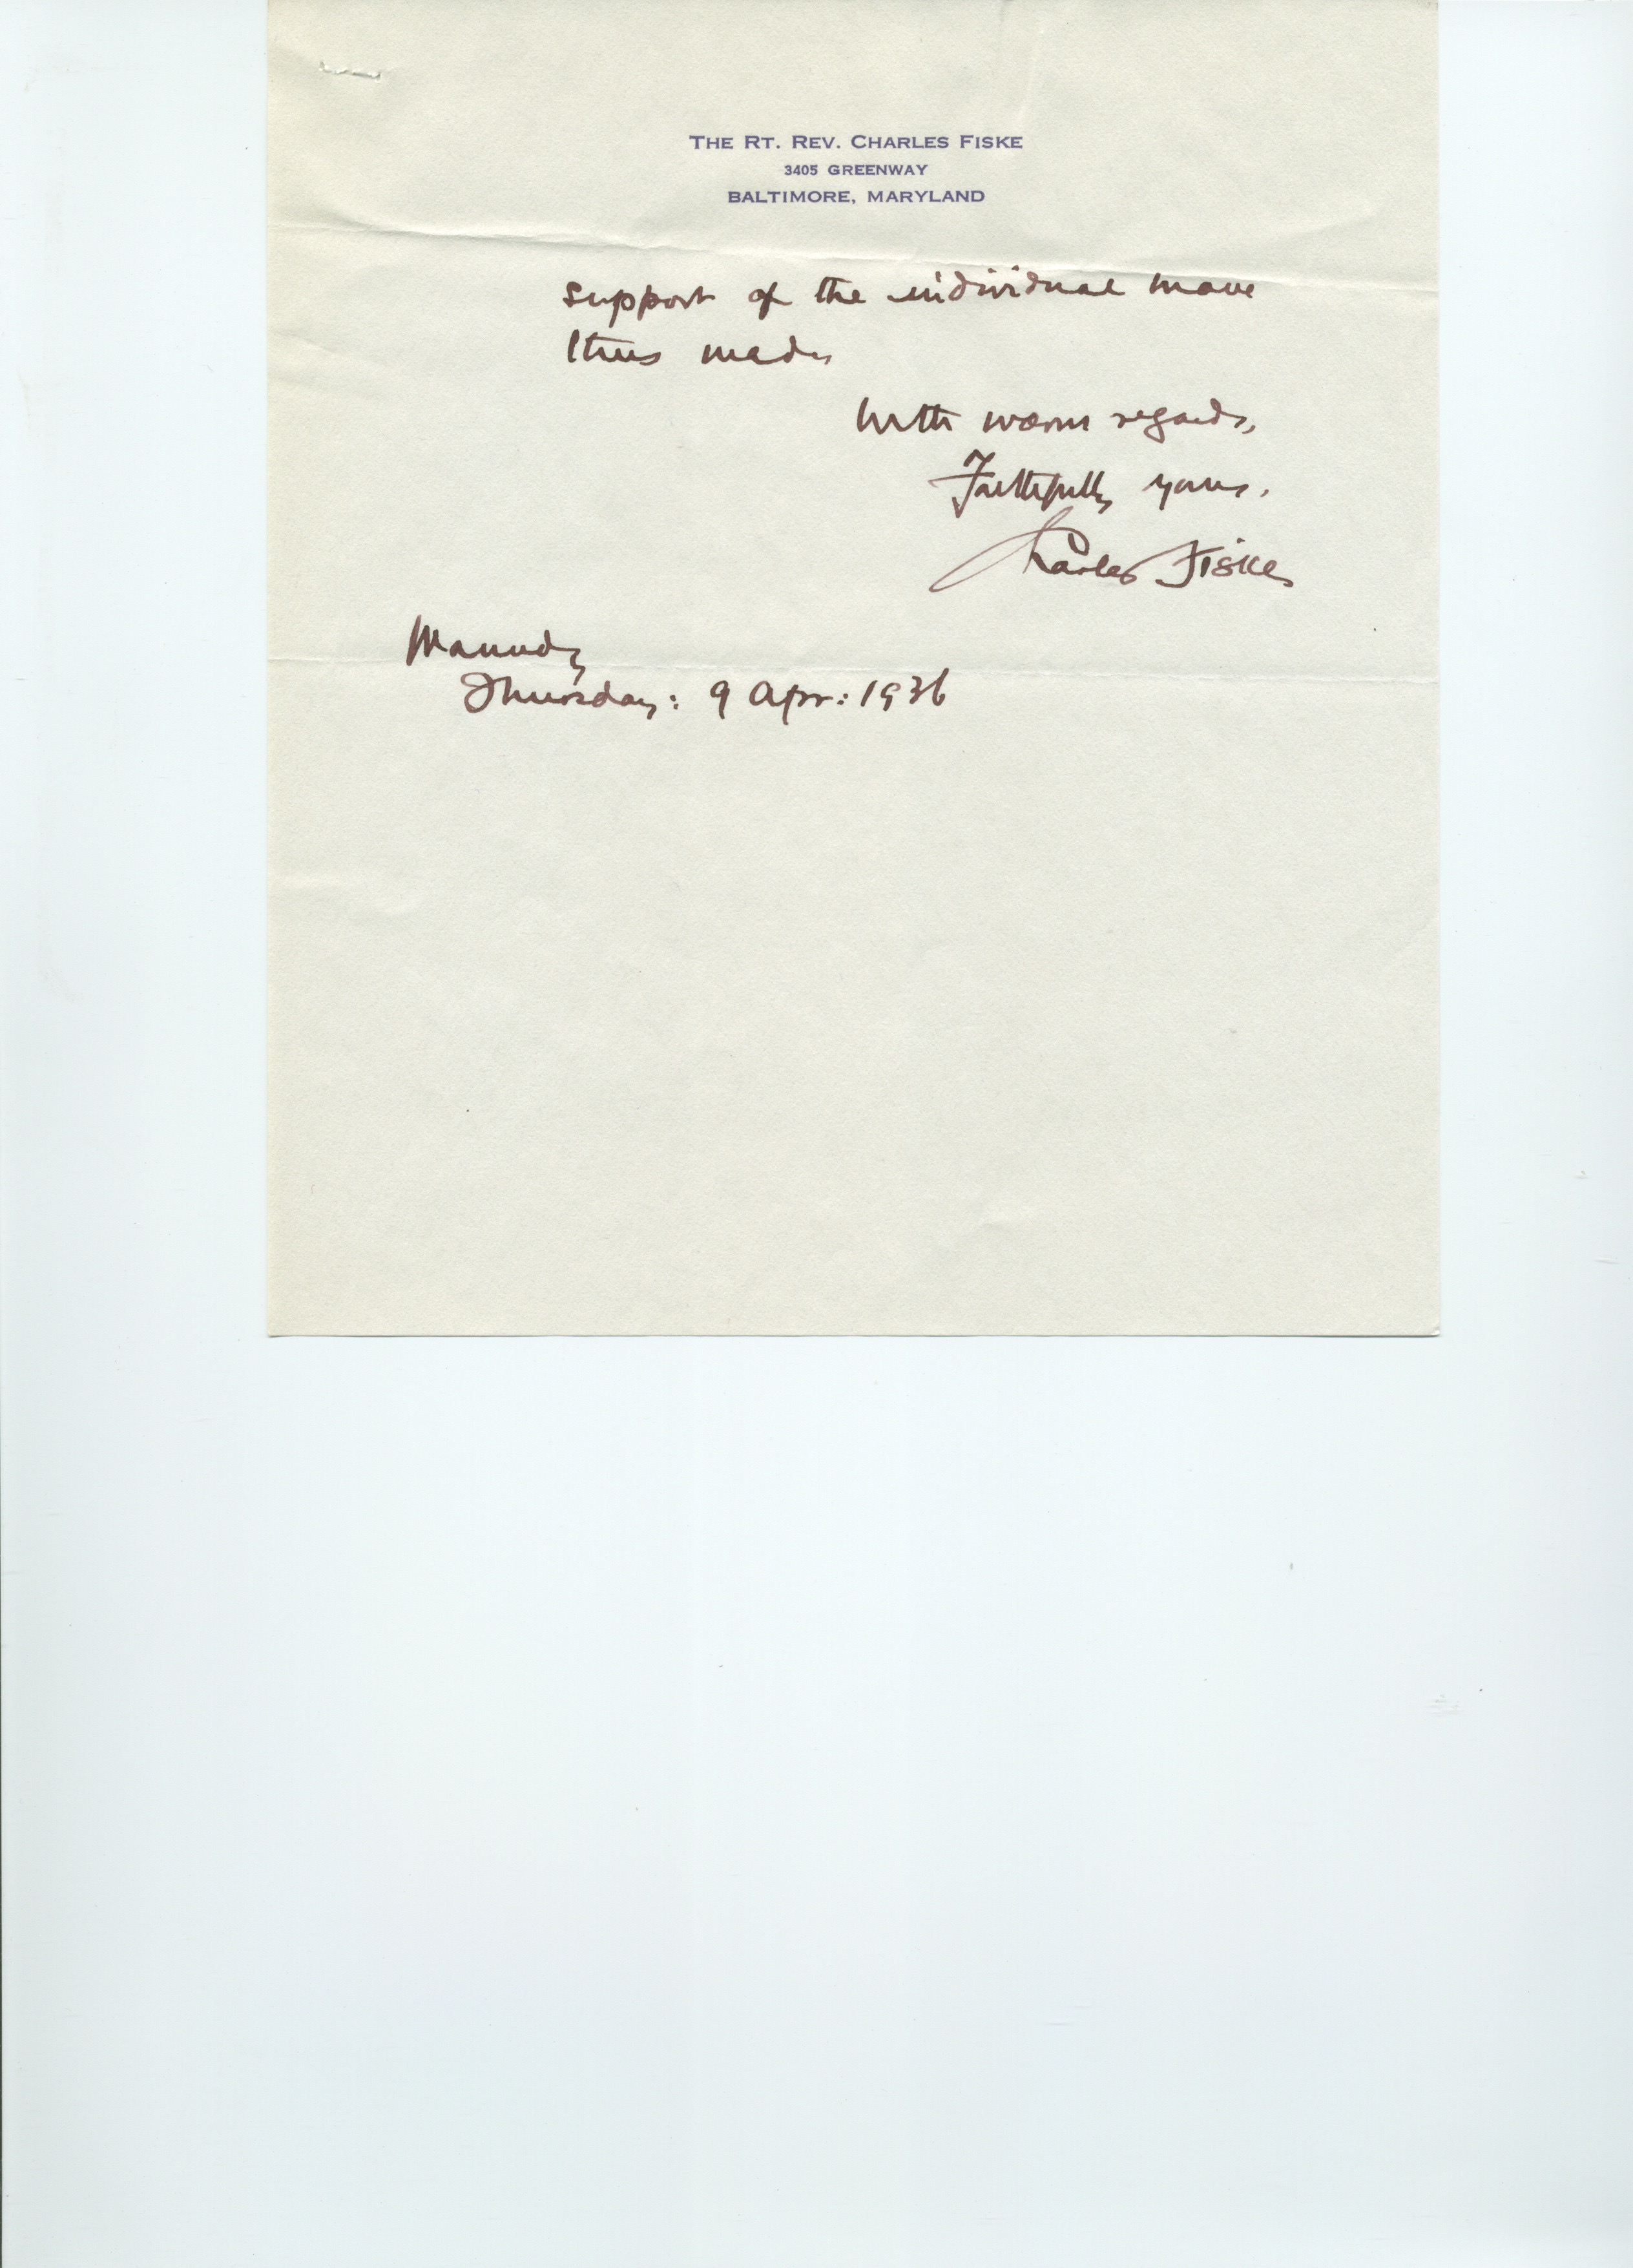 THE RT. REV. CHARLES FISKE
3405 GREENWAY
BALTIMORE, MARYLAND
support of the individual move
thus made,
With warm regards,
Faithfully yours,
Charles Fiske
Maundy
Thursday: 9 Apr: 1936